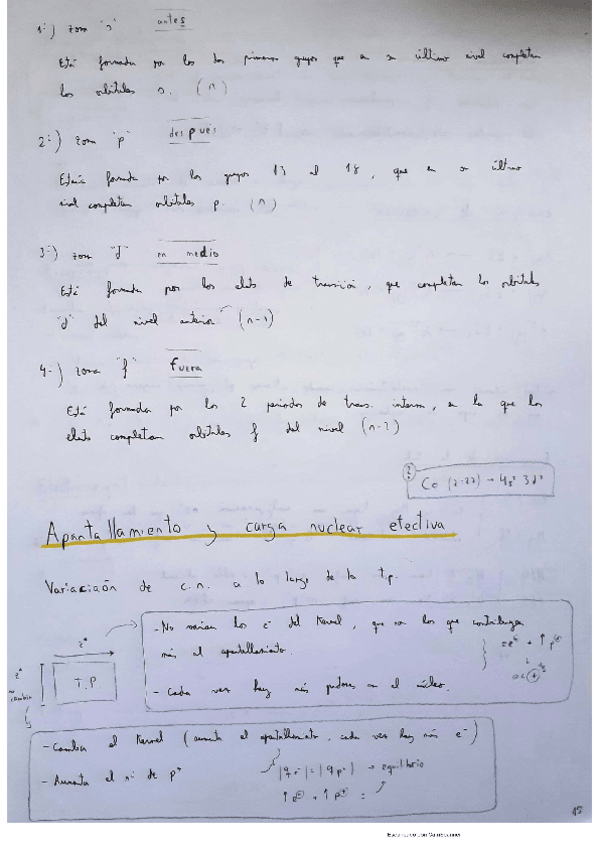 1.-) zona "s" antes
Está formada por los dos primeros grupos que en su último nivel completan
los orbitales s. (n)
2.-) zona "p" después
Estaría formada por los grupos 13 al 18, que en su último
nivel completan orbitales p. (n)
3.-) zona "d" en medio
Está formada por los elets de transición, que completan los orbitales
"d" del nivel anterior (n-1)
4.-) zona "f" fuera
Está formada por los 2 periodos de trans. interna, en la que los
elets completan orbitales f del nivel (n-2)
Apantallamiento y carga nuclear efectiva
Variación de c.n. a lo largo de la t.p.
- No varían los e⁻ del Kernel, que son los que contribuyen
más al apantallamiento.
z*
T.P
z*
no cambia
- Cada vez hay más protones en el núcleo.
- Cambia el Kernel (aumenta el apantallamiento, cada vez hay más e⁻)
- Aumenta el nº de p⁺
→ equilibrio
↑e⁻ + ↑p⁺ =
15
Escaneado con CamScanner